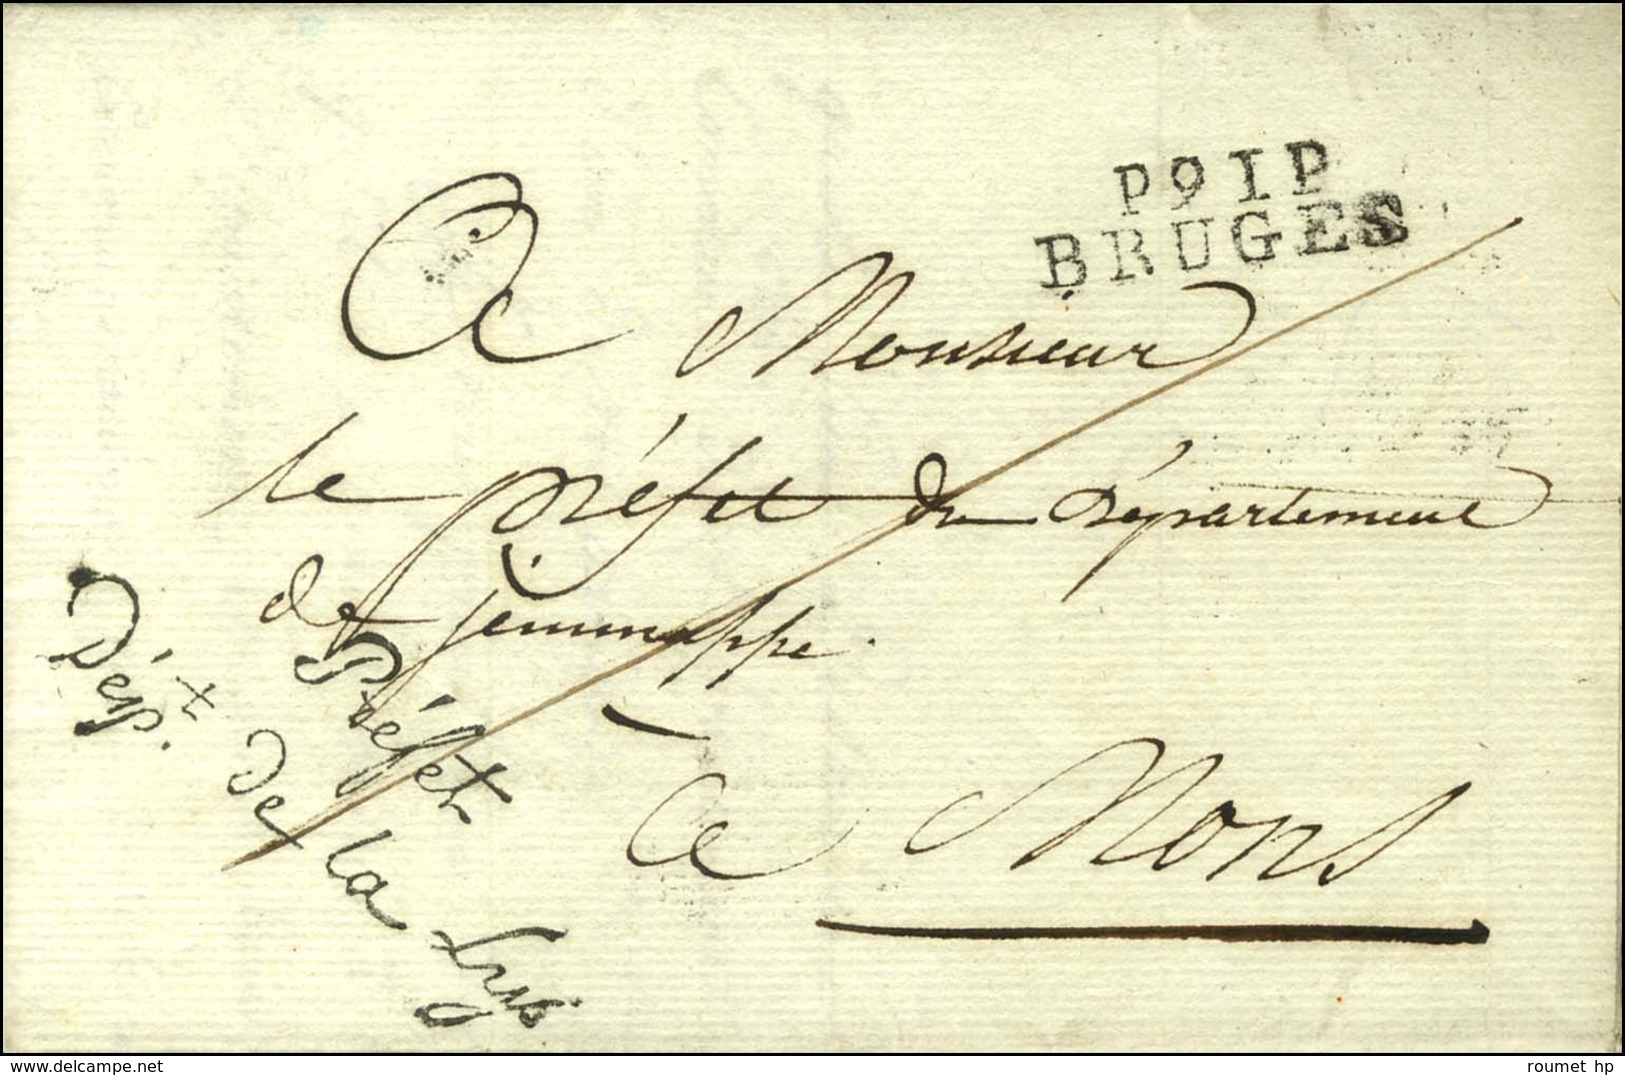 P91P
BRUGES
A Monsieur
le préfet du Département
de Jemmappe.
Préfet
Dépt. de la Lys
à Mons
www.delcampe.net
roumet hp